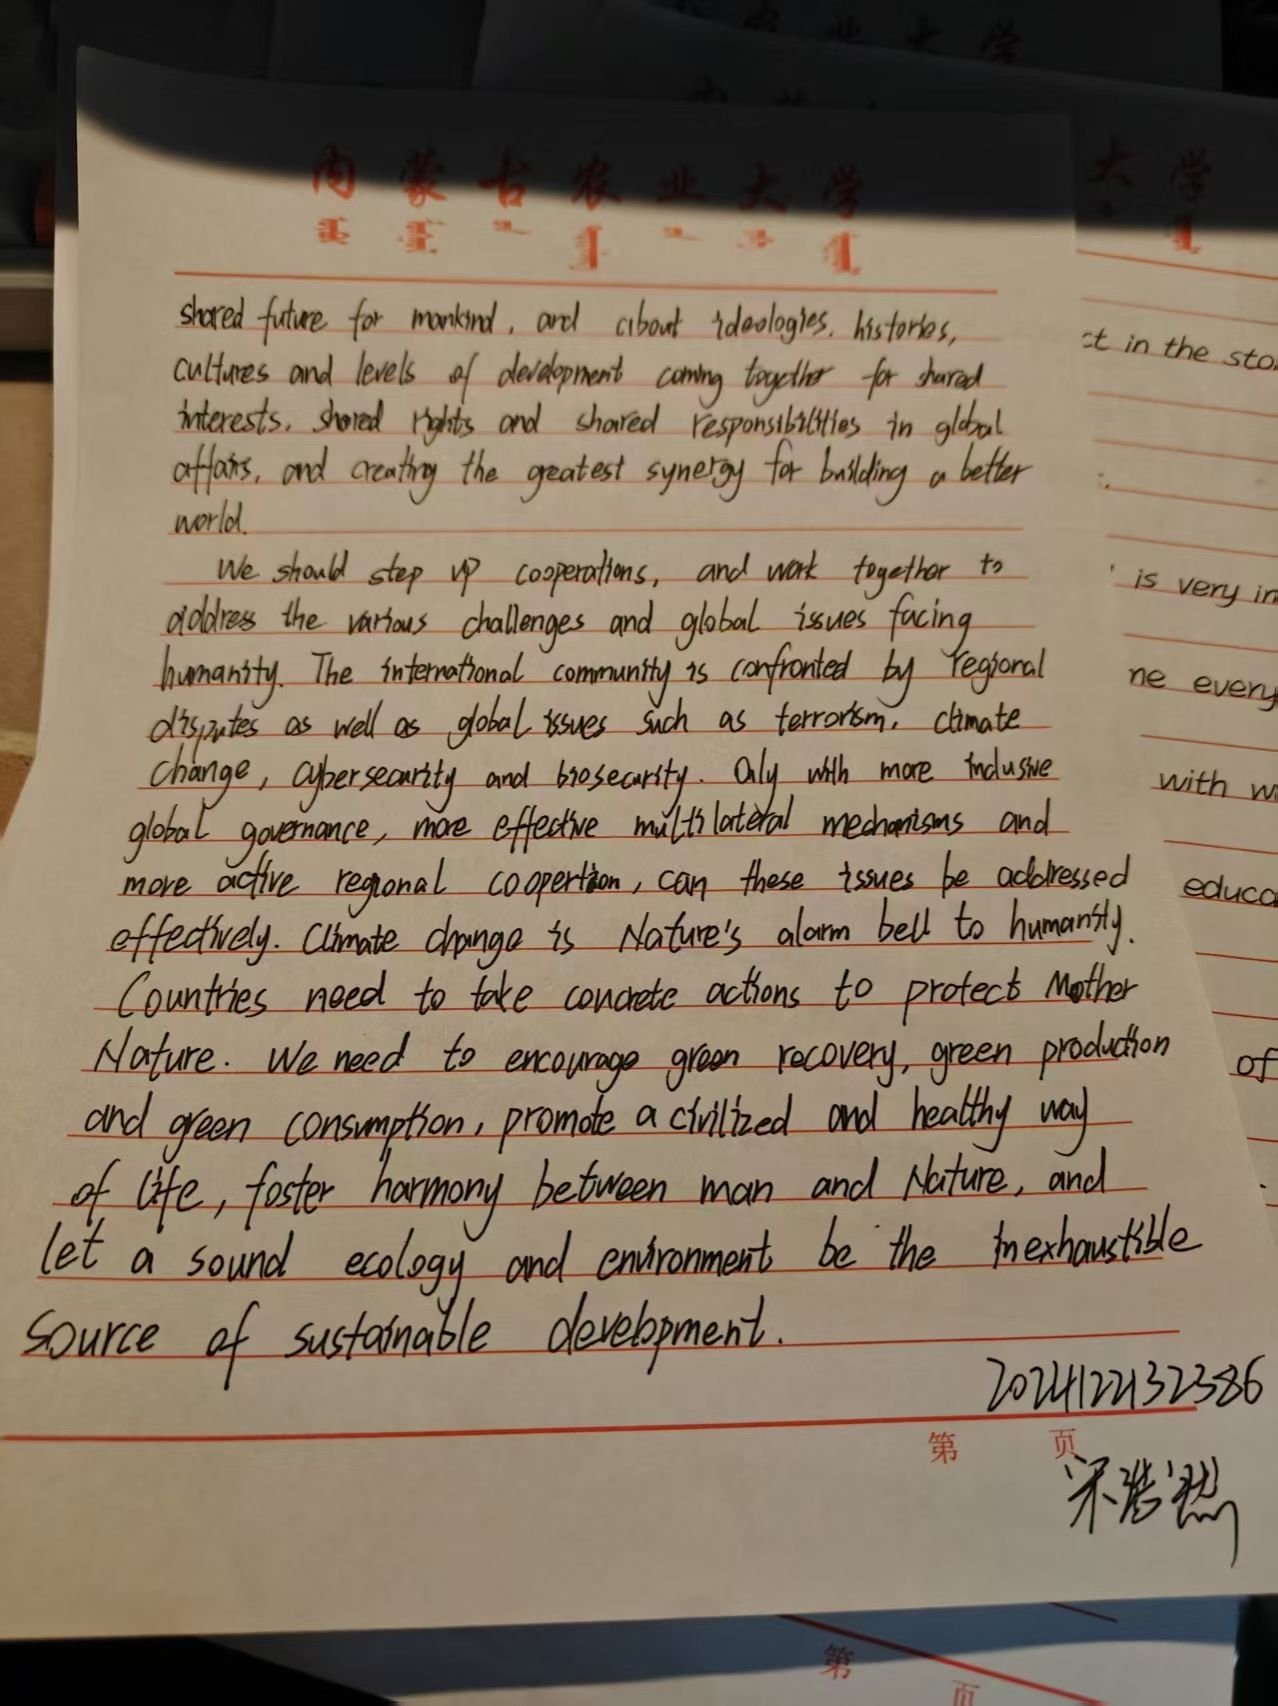 内蒙古农业大学
shared future for mankind, and about ideologies, histories,
cultures and levels of development coming together for shared
interests, shared rights and shared responsibilities in global
affairs, and creating the greatest synergy for building a better
world.
We should step up cooperations, and work together to
address the various challenges and global issues facing
humanity. The international community is confronted by regional
disputes as well as global issues such as terrorism, climate
change, cybersecurity and biosecurity. Only with more inclusive
global governance, more effective multilateral mechanisms and
more active regional coopertion, can these issues be addressed
effectively. Climate change is Nature's alarm bell to humanity.
Countries need to take concrete actions to protect Mother
Nature. We need to encourage green recovery, green production
and green consumption, promote a civilized and healthy way
of life, foster harmony between man and Nature, and
let a sound ecology and environment be the inexhaustible
source of sustainable development.
第 页
宋浩然
大学
in the
is very
every
with
of
第 页